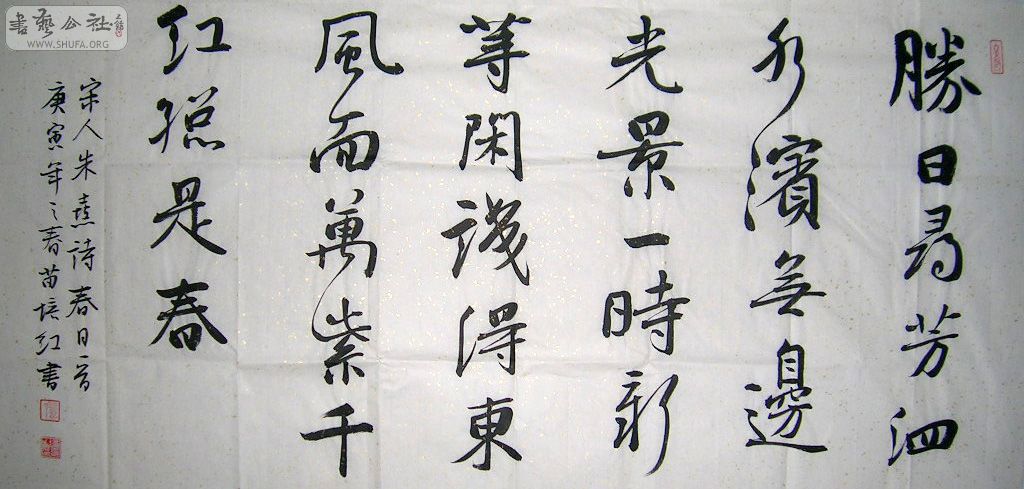 勝日尋芳泗
水濱無邊
光景一時新
等閑識得東
風面萬紫千
红總是春
宋人朱熹詩春日一首
庚寅年之春苗培红書
書藝公社
WWW.SHUFA.ORG